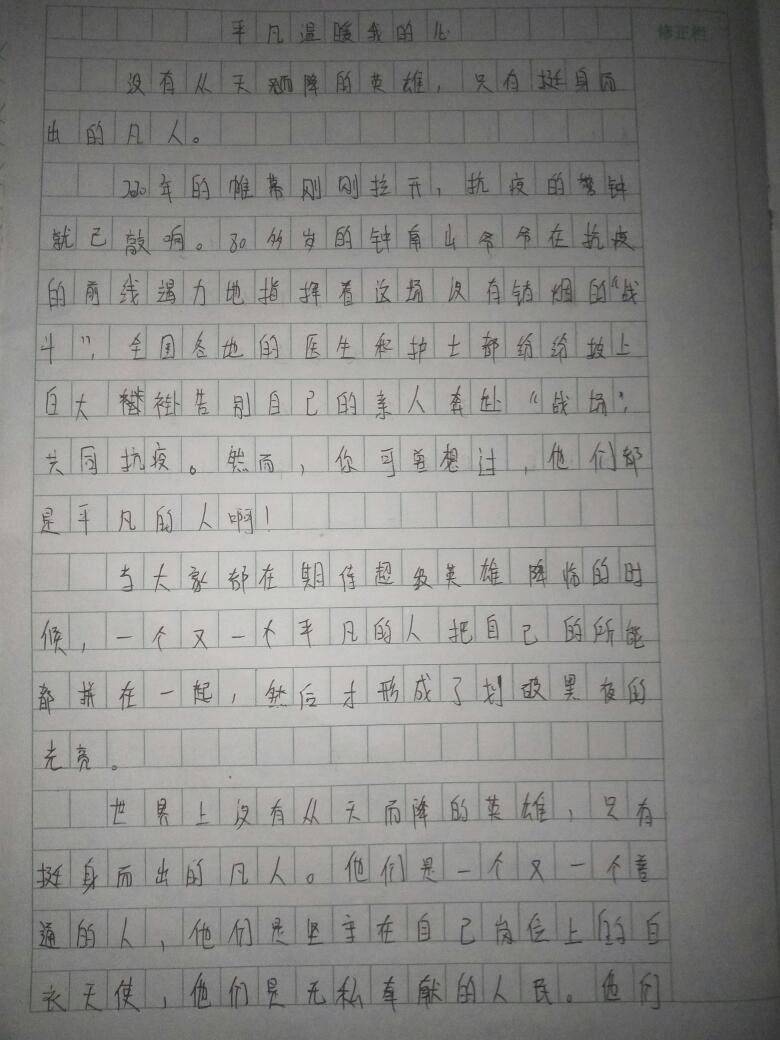 修正栏
平凡温暖我的心
没有从天而降的英雄，只有挺身而
出的凡人。
2020年的帷幕刚刚拉开，抗疫的警钟
就已敲响。80多岁的钟南山爷爷在抗疫
的前线竭力地指挥着这场没有销烟的“战
斗”，全国各地的医生和护士都纷纷披上
白大褂告别自己的亲人奔赴“战场”，
共同抗疫。然而，你可曾想过，他们都
是平凡的人啊！
当大家都在期待超级英雄降临的时
候，一个又一个平凡的人把自己的所能
都拼在一起，然后才形成了划破黑夜的
光亮。
世界上没有从天而降的英雄，只有
挺身而出的凡人。他们是一个又一个普
通的人，他们是坚守在自己岗位上的白
衣天使，他们是无私奉献的人民。他们